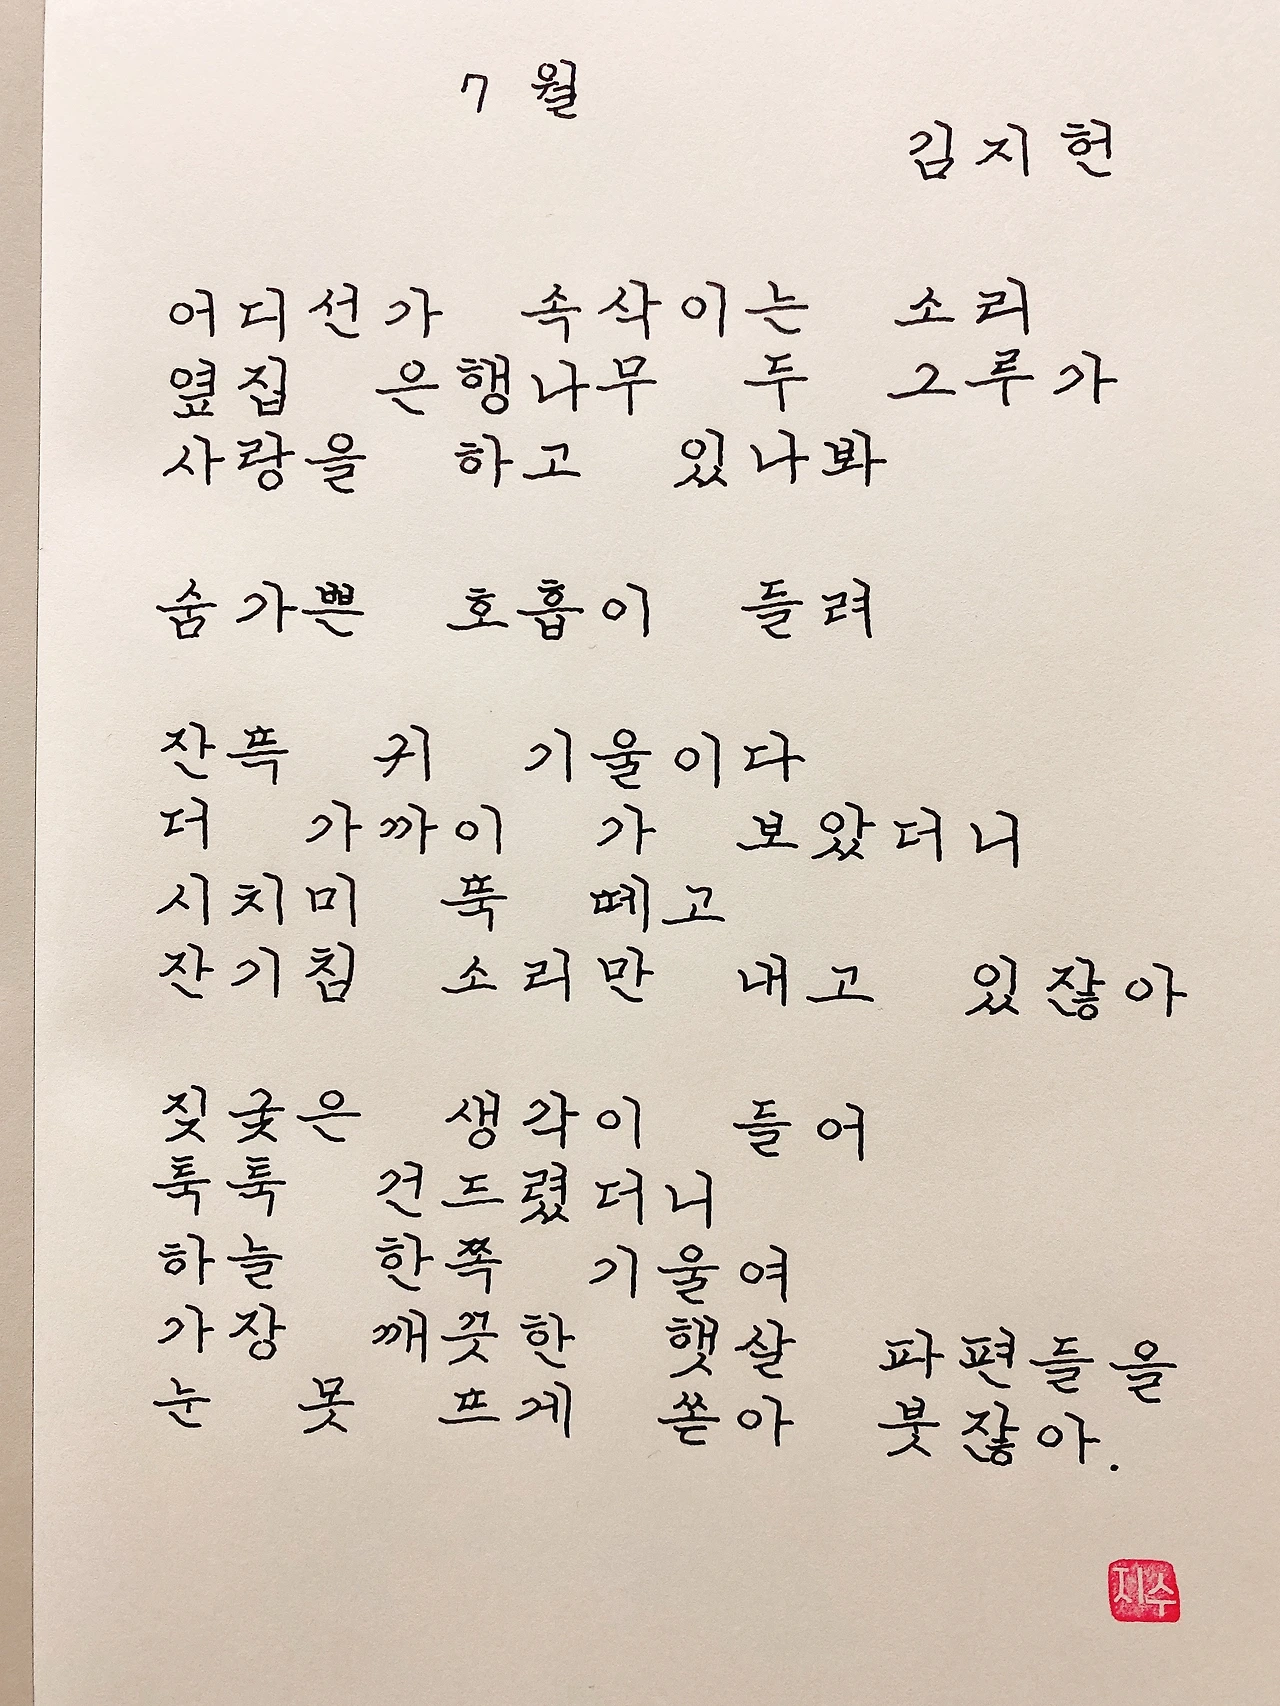 7 월
김지헌
어디선가 속삭이는 소리
옆집 은행나무 두 그루가
사랑을 하고 있나봐
숨가쁜 호흡이 들려
잔뜩 귀 기울이다
더 가까이 가 보았더니
시치미 뚝 떼고
잔기침 소리만 내고 있잖아
짖궂은 생각이 들어
툭툭 건드렸더니
하늘 한쪽 기울여
가장 깨끗한 햇살 파편들을
눈 못 뜨게 쏟아 붓잖아.
지수